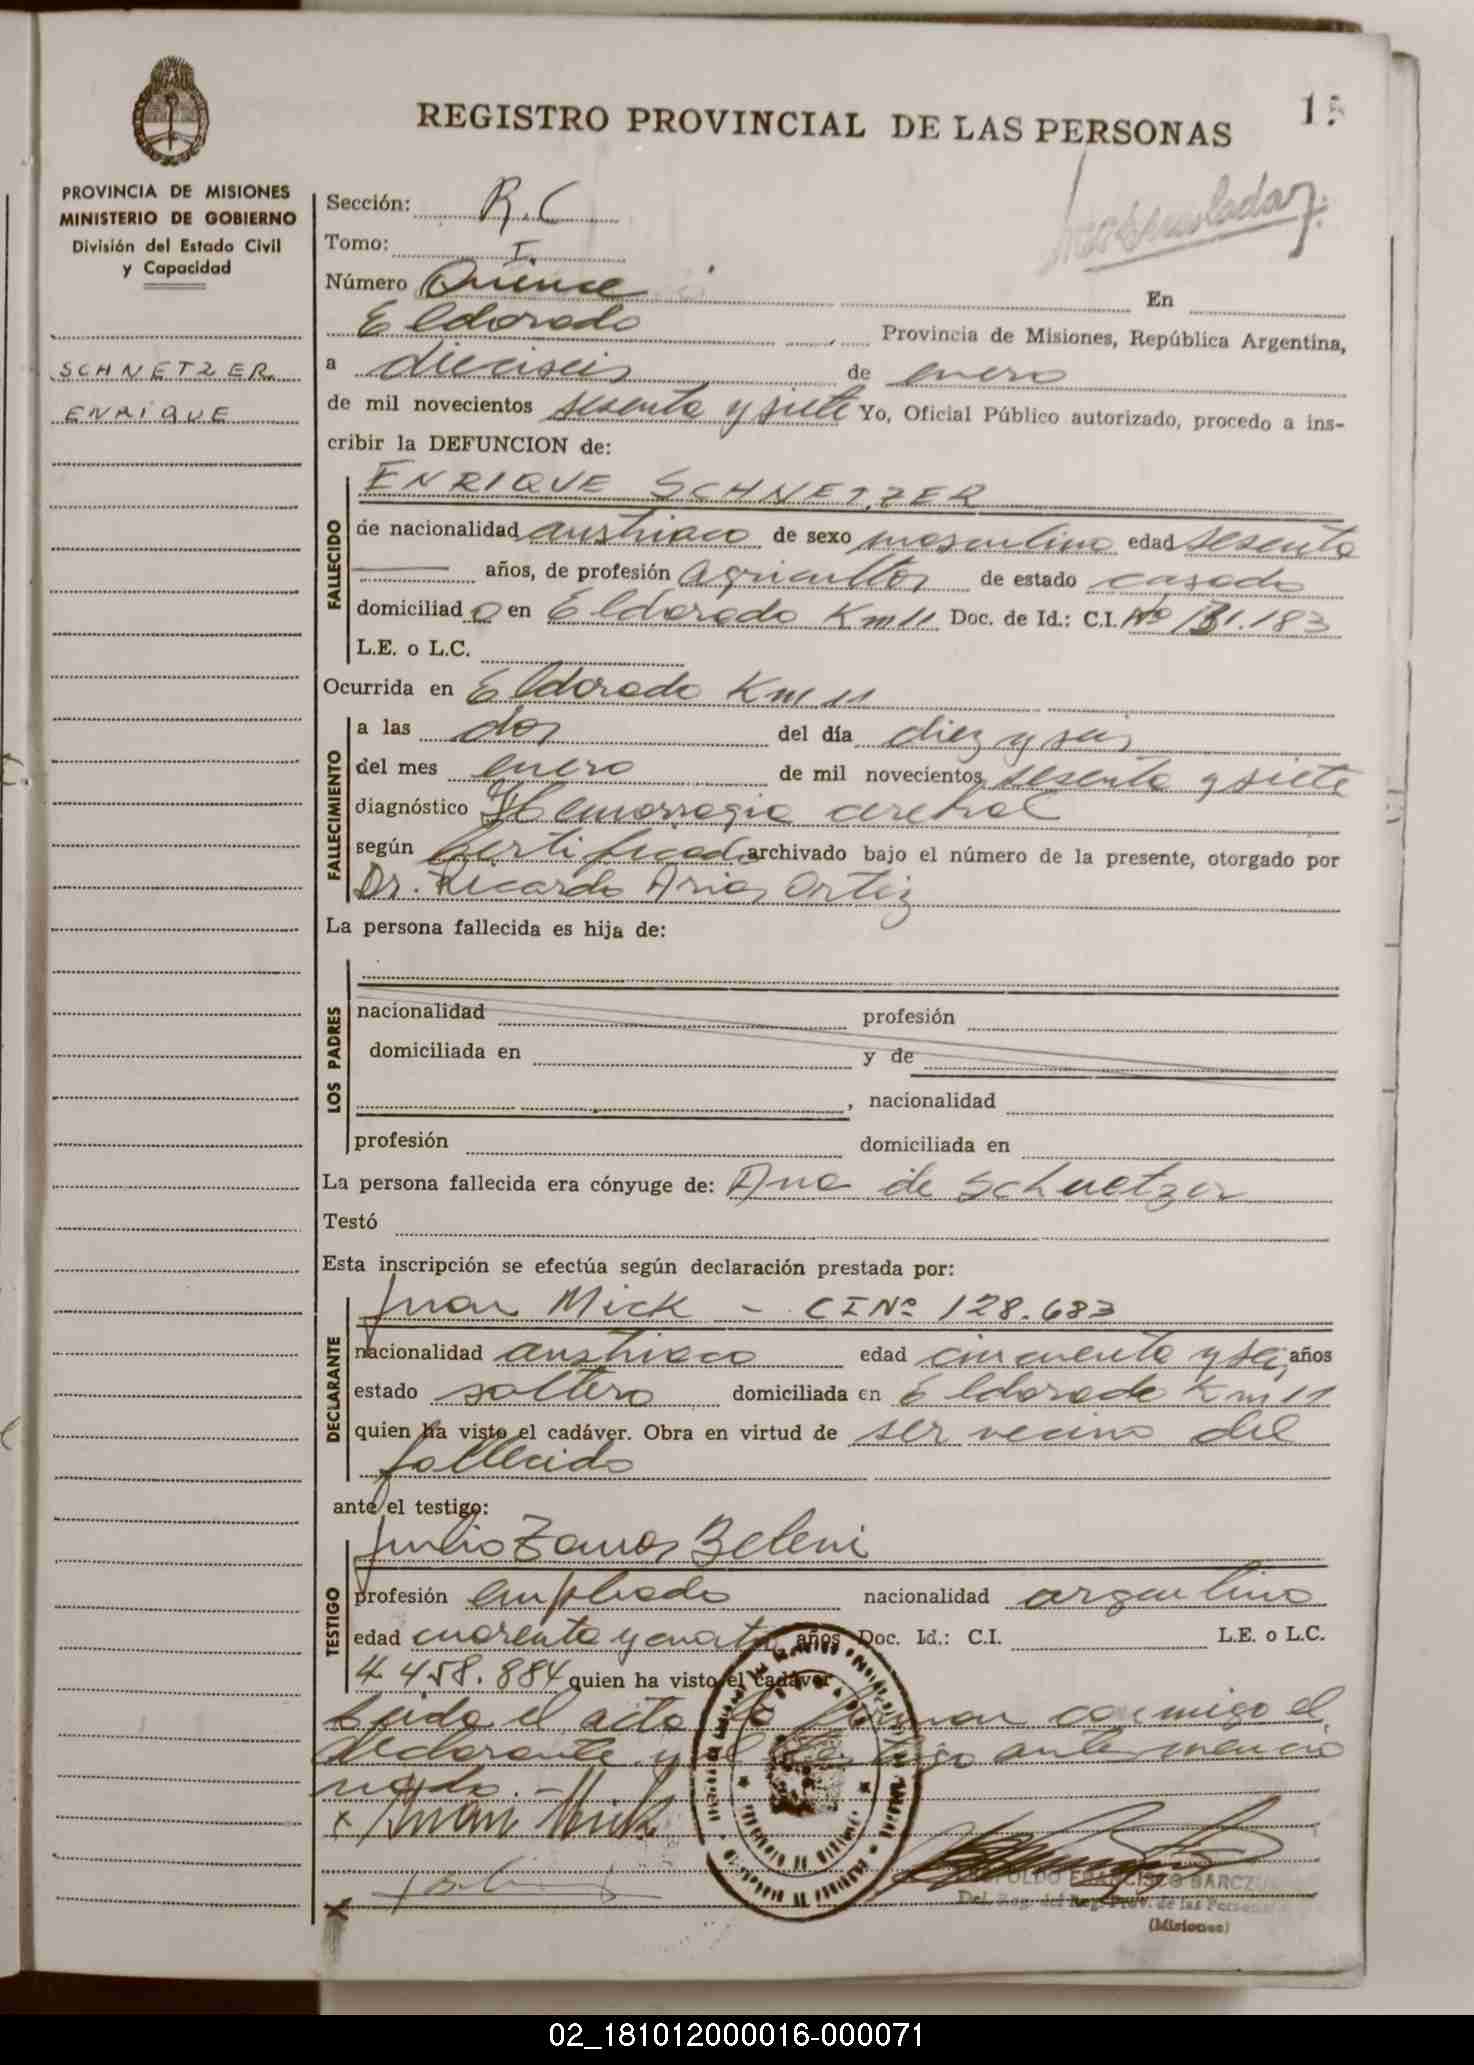 REGISTRO PROVINCIAL DE LAS PERSONAS
PROVINCIA DE MISIONES
MINISTERIO DE GOBIERNO
División del Estado Civil
y Capacidad
SCHNETZER
ENRIQUE
Sección: R.C
Tomo: I.
Número Quince En
Eldorado Provincia de Misiones, República Argentina,
a dieciseis de enero
de mil novecientos sesenta y siete Yo, Oficial Público autorizado, procedo a ins-
cribir la DEFUNCION de:
FALLECIDO
ENRIQUE SCHNETZER
de nacionalidad austriaco de sexo masculino edad sesenta
años, de profesión Agricultor de estado casado
domiciliado en Eldorado Km 11 Doc. de Id.: C.I. Nº 131.183
L.E. o L.C.
Ocurrida en Eldorado Km 11
FALLECIMIENTO
a las dos del día diez y seis
del mes enero de mil novecientos sesenta y siete
diagnóstico Hemorragia cerebral
según Certificado archivado bajo el número de la presente, otorgado por
Dr. Ricardo Arias Ortiz
La persona fallecida es hija de:
LOS PADRES
nacionalidad profesión
domiciliada en y de
, nacionalidad
profesión domiciliada en
La persona fallecida era cónyuge de: Ana de Schnetzer
Testó
Esta inscripción se efectúa según declaración prestada por:
DECLARANTE
Juan Mick - CI Nº 128.683
nacionalidad austriaco edad cincuenta y seis años
estado soltero domiciliada en Eldorado Km 11
quien ha visto el cadáver. Obra en virtud de ser vecino del
fallecido
ante el testigo:
TESTIGO
Julio Beleni
profesión empleado nacionalidad argentino
edad cuarenta y cuatro años Doc. Id.: C.I. L.E. o L.C.
4.458.884 quien ha visto el cadáver
Leida el acta la firman conmigo el
declarante y el testigo antemencio
nado. -
x Juan Mick
FRANCISCO BARCZ
Del. Reg. del Reg. Prov. de las Personas
(Misiones)
02_181012000016-000071